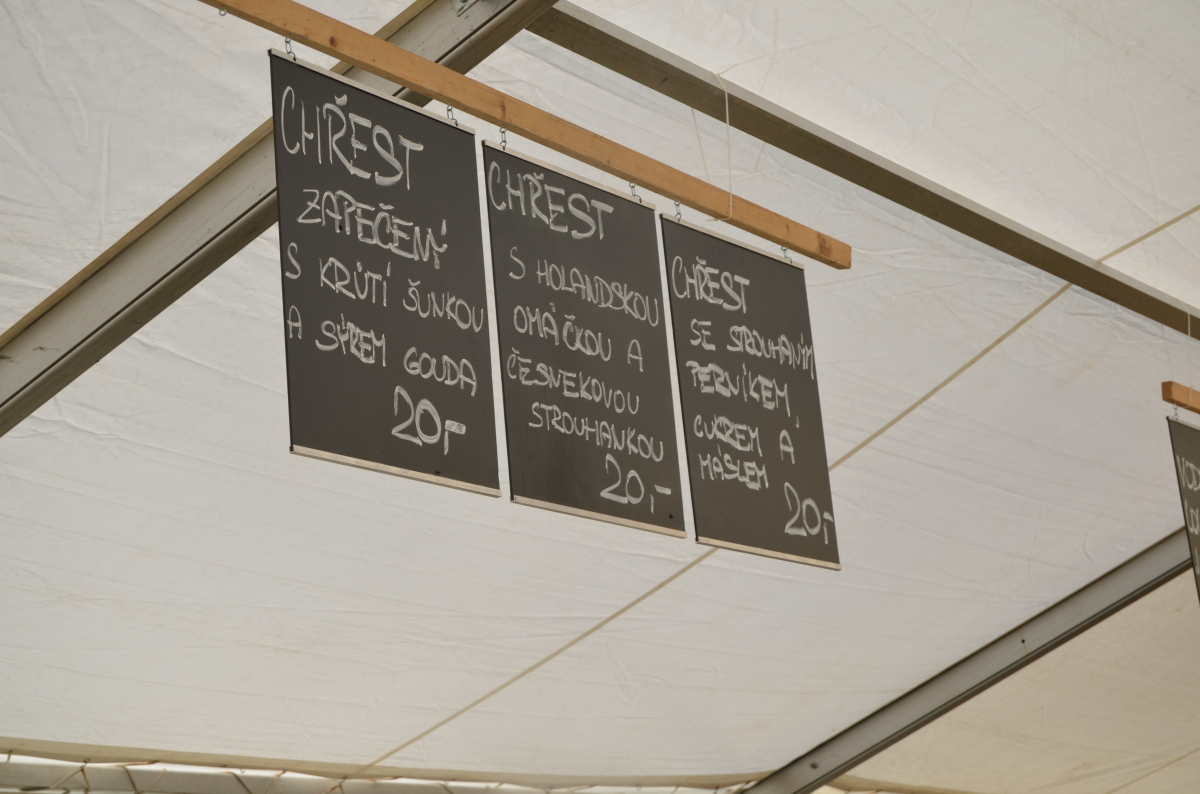 CHŘEST
ZAPEČENÝ
S KRŮTÍ ŠUNKOU
A SÝREM GOUDA
20,-
CHŘEST
S HOLANDSKOU
OMÁČKOU A
ČESNEKOVOU
STROUHANKOU
20,-
CHŘEST
SE STROUHANÝM
PERNÍKEM,
CUKREM A
MÁSLEM
20,-